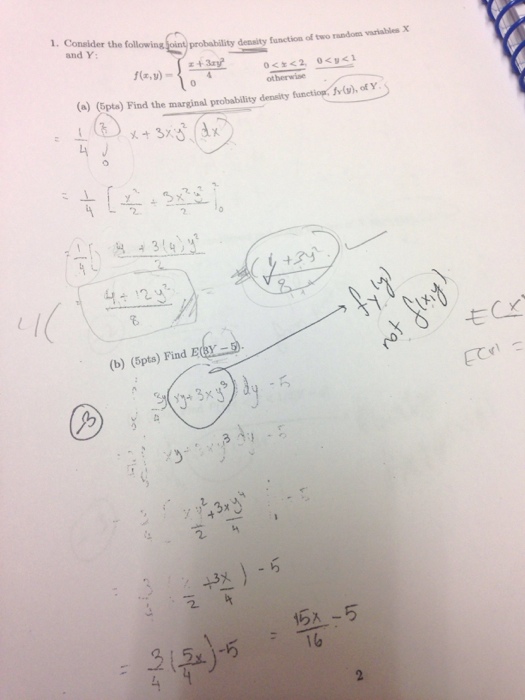 1. Consider the following joint probability density function of two random variables X
and Y:
f(x,y) = { x + 3xy² / 4   0 < x < 2, 0 < y < 1
0   otherwise
(a) (5pts) Find the marginal probability density function, f_Y(y), of Y.
= 1/4 ∫₀² x + 3xy² dx
= 1/4 [ x²/2 + 3x²y²/2 ]₀²
= 1/4 [ 4 + 3(4)y² / 2
4 + 12y² / 8 = + 3y²
4(
f_Y(y)
not f(x,y)
E(X
E(X) =
(b) (5pts) Find E(3Y − 5).
3y/4 (xy + 3xy³) dy − 5
3
xy 3xy³ dy − 5
xy²/2 + 3xy⁴/4 − 5
= x/2 + 3x/4 ) − 5
= 3/4 ( 5x/4 ) − 5 = 15x/16 − 5
2